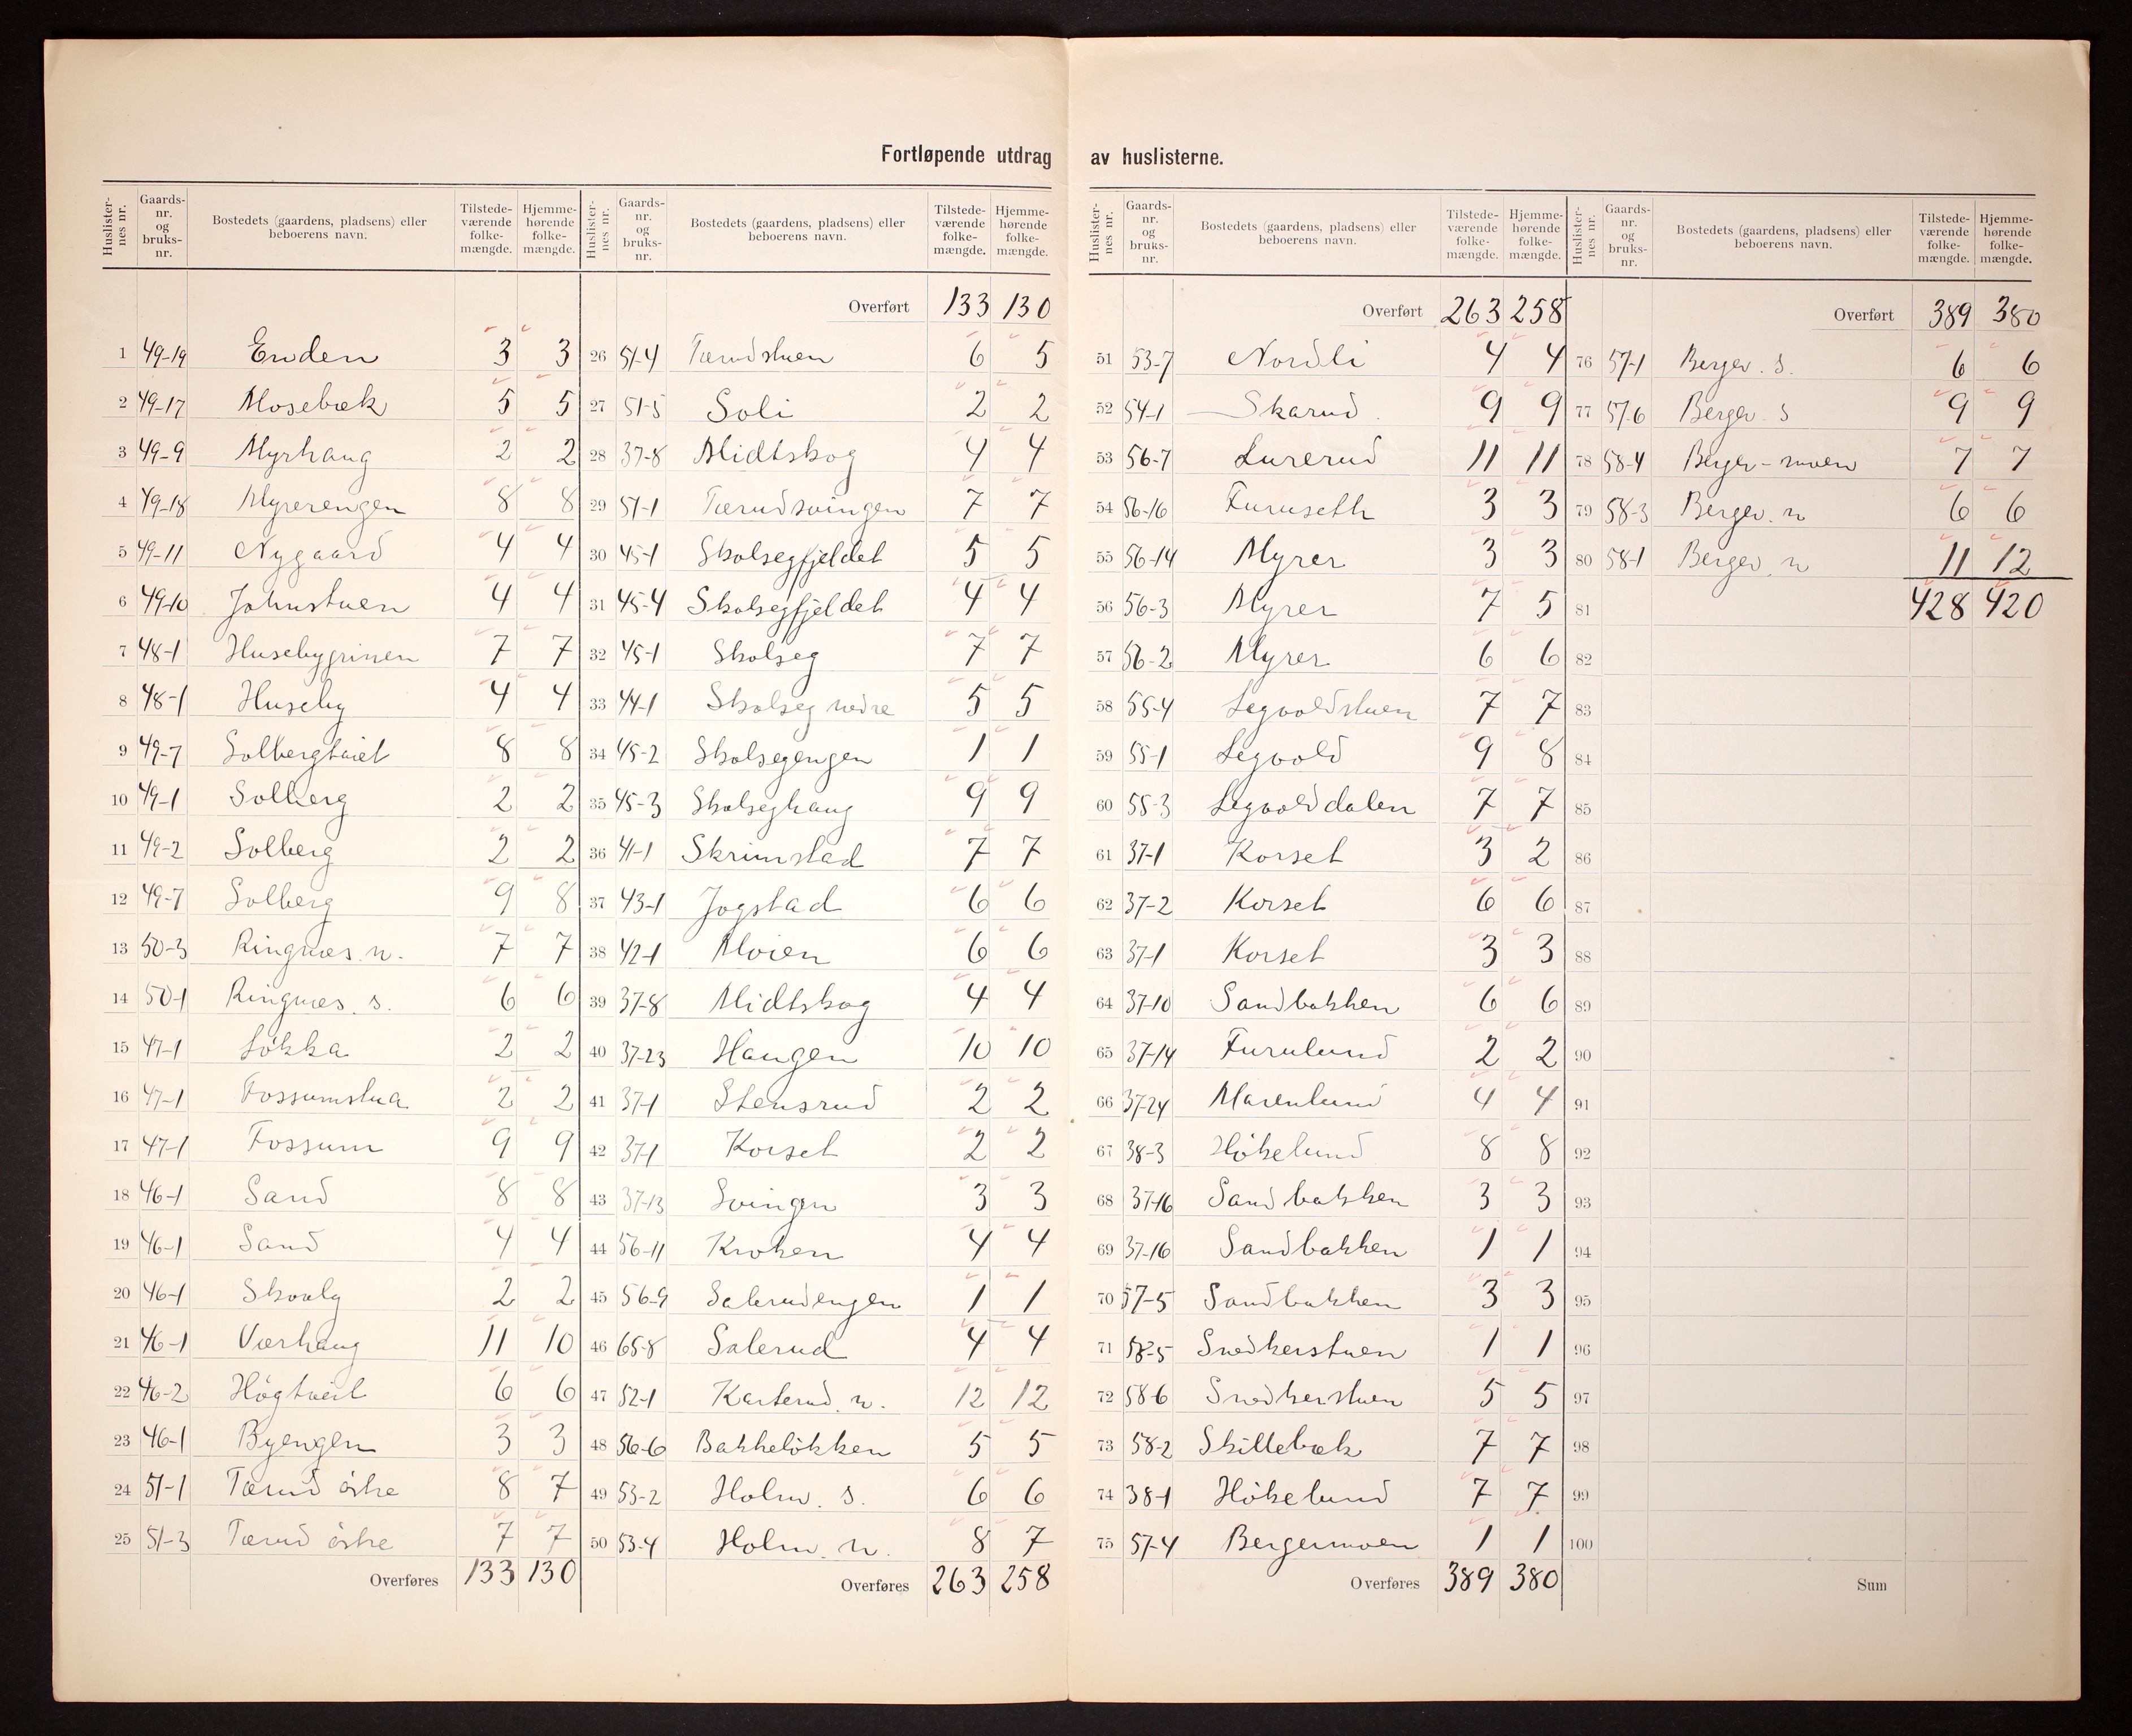 Fortløpende utdrag av huslisterne.
Huslister-nes nr. Gaards-nr. og bruks-nr. Bostedets (gaardens, pladsens) eller beboerens navn. Tilstede-værende folke-mængde. Hjemme-hørende folke-mængde.
1 49-19 Enden 3 3
2 49-17 Mosebæk 5 5
3 49-9 Myrhaug 2 2
4 49-18 Myrerengen 8 8
5 49-11 Nygaard 4 4
6 49-10 Johnstuen 4 4
7 48-1 Husebygrinen 7 7
8 48-1 Huseby 4 4
9 49-7 Solbergtviet 8 8
10 49-1 Solberg 2 2
11 49-2 Solberg 2 2
12 49-7 Solberg 9 8
13 50-3 Ringnæs n. 7 7
14 50-1 Ringnæs. s. 6 6
15 47-1 Løkka 2 2
16 47-1 Fossumstua 2 2
17 47-1 Fossum 9 9
18 46-1 Sand 8 8
19 46-1 Sand 4 4
20 46-1 Skovly 2 2
21 46-1 Værhaug 11 10
22 46-2 Høgtveit 6 6
23 46-1 Byengen 3 3
24 51-1 Tærud østre 8 7
25 51-3 Tærud østre 7 7
Overføres 133 130
Huslister-nes nr. Gaards-nr. og bruks-nr. Bostedets (gaardens, pladsens) eller beboerens navn. Tilstede-værende folke-mængde. Hjemme-hørende folke-mængde.
Overført 133 130
26 51-4 Tærudstuen 6 5
27 51-5 Soli 2 2
28 37-8 Midtskog 4 4
29 51-1 Tærudsvingen 7 7
30 45-1 Skolsegfjeldet 5 5
31 45-4 Skolsegfjeldet 4 4
32 45-1 Skolseg 7 7
33 44-1 Skolseg nedre 5 5
34 45-2 Skolsegengen 1 1
35 45-3 Skolseghaug 9 9
36 41-1 Skrimstad 7 7
37 43-1 Jogstad 6 6
38 42-1 Moien 6 6
39 37-8 Midtskog 4 4
40 37-23 Haugen 10 10
41 37-1 Stensrud 2 2
42 37-1 Korset 2 2
43 37-13 Svingen 3 3
44 56-11 Kroken 4 4
45 56-9 Salerudengen 1 1
46 65-8 Salerud 4 4
47 52-1 Karterud. n. 12 12
48 56-6 Bakkeløkken 5 5
49 53-2 Holm. s. 6 6
50 53-4 Holm. n. 8 7
Overføres 263 258
Huslister-nes nr. Gaards-nr. og bruks-nr. Bostedets (gaardens, pladsens) eller beboerens navn. Tilstede-værende folke-mængde. Hjemme-hørende folke-mængde.
Overført 263 258
51 53-7 Nordli 4 4
52 54-1 Skarud. 9 9
53 56-7 Lurerud 11 11
54 56-16 Furuseth 3 3
55 56-14 Myrer 3 3
56 56-3 Myrer 7 5
57 56-2 Myrer 6 6
58 55-4 Legvoldstuen 7 7
59 55-1 Legvold 9 8
60 55-3 Legvolddalen 7 7
61 37-1 Korset 3 2
62 37-2 Korset 6 6
63 37-1 Korset 3 3
64 37-10 Sandbakken 6 6
65 37-14 Furulund 2 2
66 37-24 Marenlund 4 4
67 38-3 Høkelund 8 8
68 37-16 Sandbakken 3 3
69 37-16 Sandbakken 1 1
70 57-5 Sandbakken 3 3
71 58-5 Snedkerstuen 1 1
72 58-6 Snedkerstuen 5 5
73 58-2 Skillebæk 7 7
74 38-1 Høkelund 7 7
75 57-4 Bergermoen 1 1
Overføres 389 380
Huslister-nes nr. Gaards-nr. og bruks-nr. Bostedets (gaardens, pladsens) eller beboerens navn. Tilstede-værende folke-mængde. Hjemme-hørende folke-mængde.
Overført 389 380
76 57-1 Berger. s. 6 6
77 57-6 Berger. s 9 9
78 58-4 Berger-moen 7 7
79 58-3 Berger. n 6 6
80 58-1 Berger. n 11 12
81 428 420
82
83
84
85
86
87
88
89
90
91
92
93
94
95
96
97
98
99
100
Sum